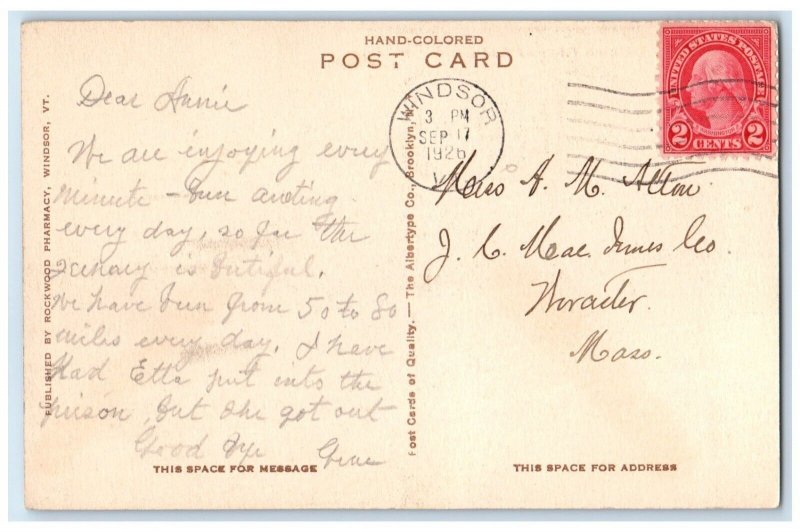 HAND-COLORED
POST CARD
PUBLISHED BY ROCKWOOD PHARMACY, WINDSOR, VT.
Dear Annie
We are injoying every
minute - bun anting
every day, so far the
Scenary is butiful.
We have bun from 50 to 80
miles every day. I have
Had Etta put into the
prison, but she got out
Good bye Gene
THIS SPACE FOR MESSAGE
Post Cards of Quality. — The Albertype Co., Brooklyn,
WINDSOR
3 PM
SEP 17
1926
V
UNITED STATES POSTAGE
WASHINGTON
2 CENTS 2
Miss A. M. Alton
J. C. Mac Innes Co
Worcester.
Mass.
THIS SPACE FOR ADDRESS